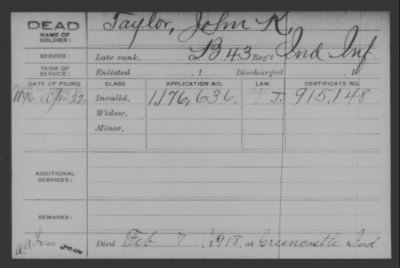 DEAD Taylor, John K.
NAME OF
SOLDIER:
SERVICE: Late rank, Co. B 43 Reg't Ind Inf.
TERM OF
SERVICE: Enlisted , 1 Discharged , 1
DATE OF FILING. CLASS APPLICATION NO. LAW CERTIFICATE NO.
1896 Apr 22 Invalid, 1,176,636 J. 915,148
Widow,
Minor,
ADDITIONAL
SERVICES:
REMARKS:
Died Feb 7, 1918, at Greencastle Ind